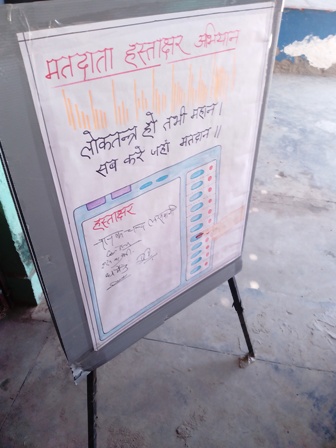 मतदाता हस्ताक्षर अभियान
लोकतन्त्र हो तभी महान।
सब करे जहां मतदान॥
हस्ताक्षर